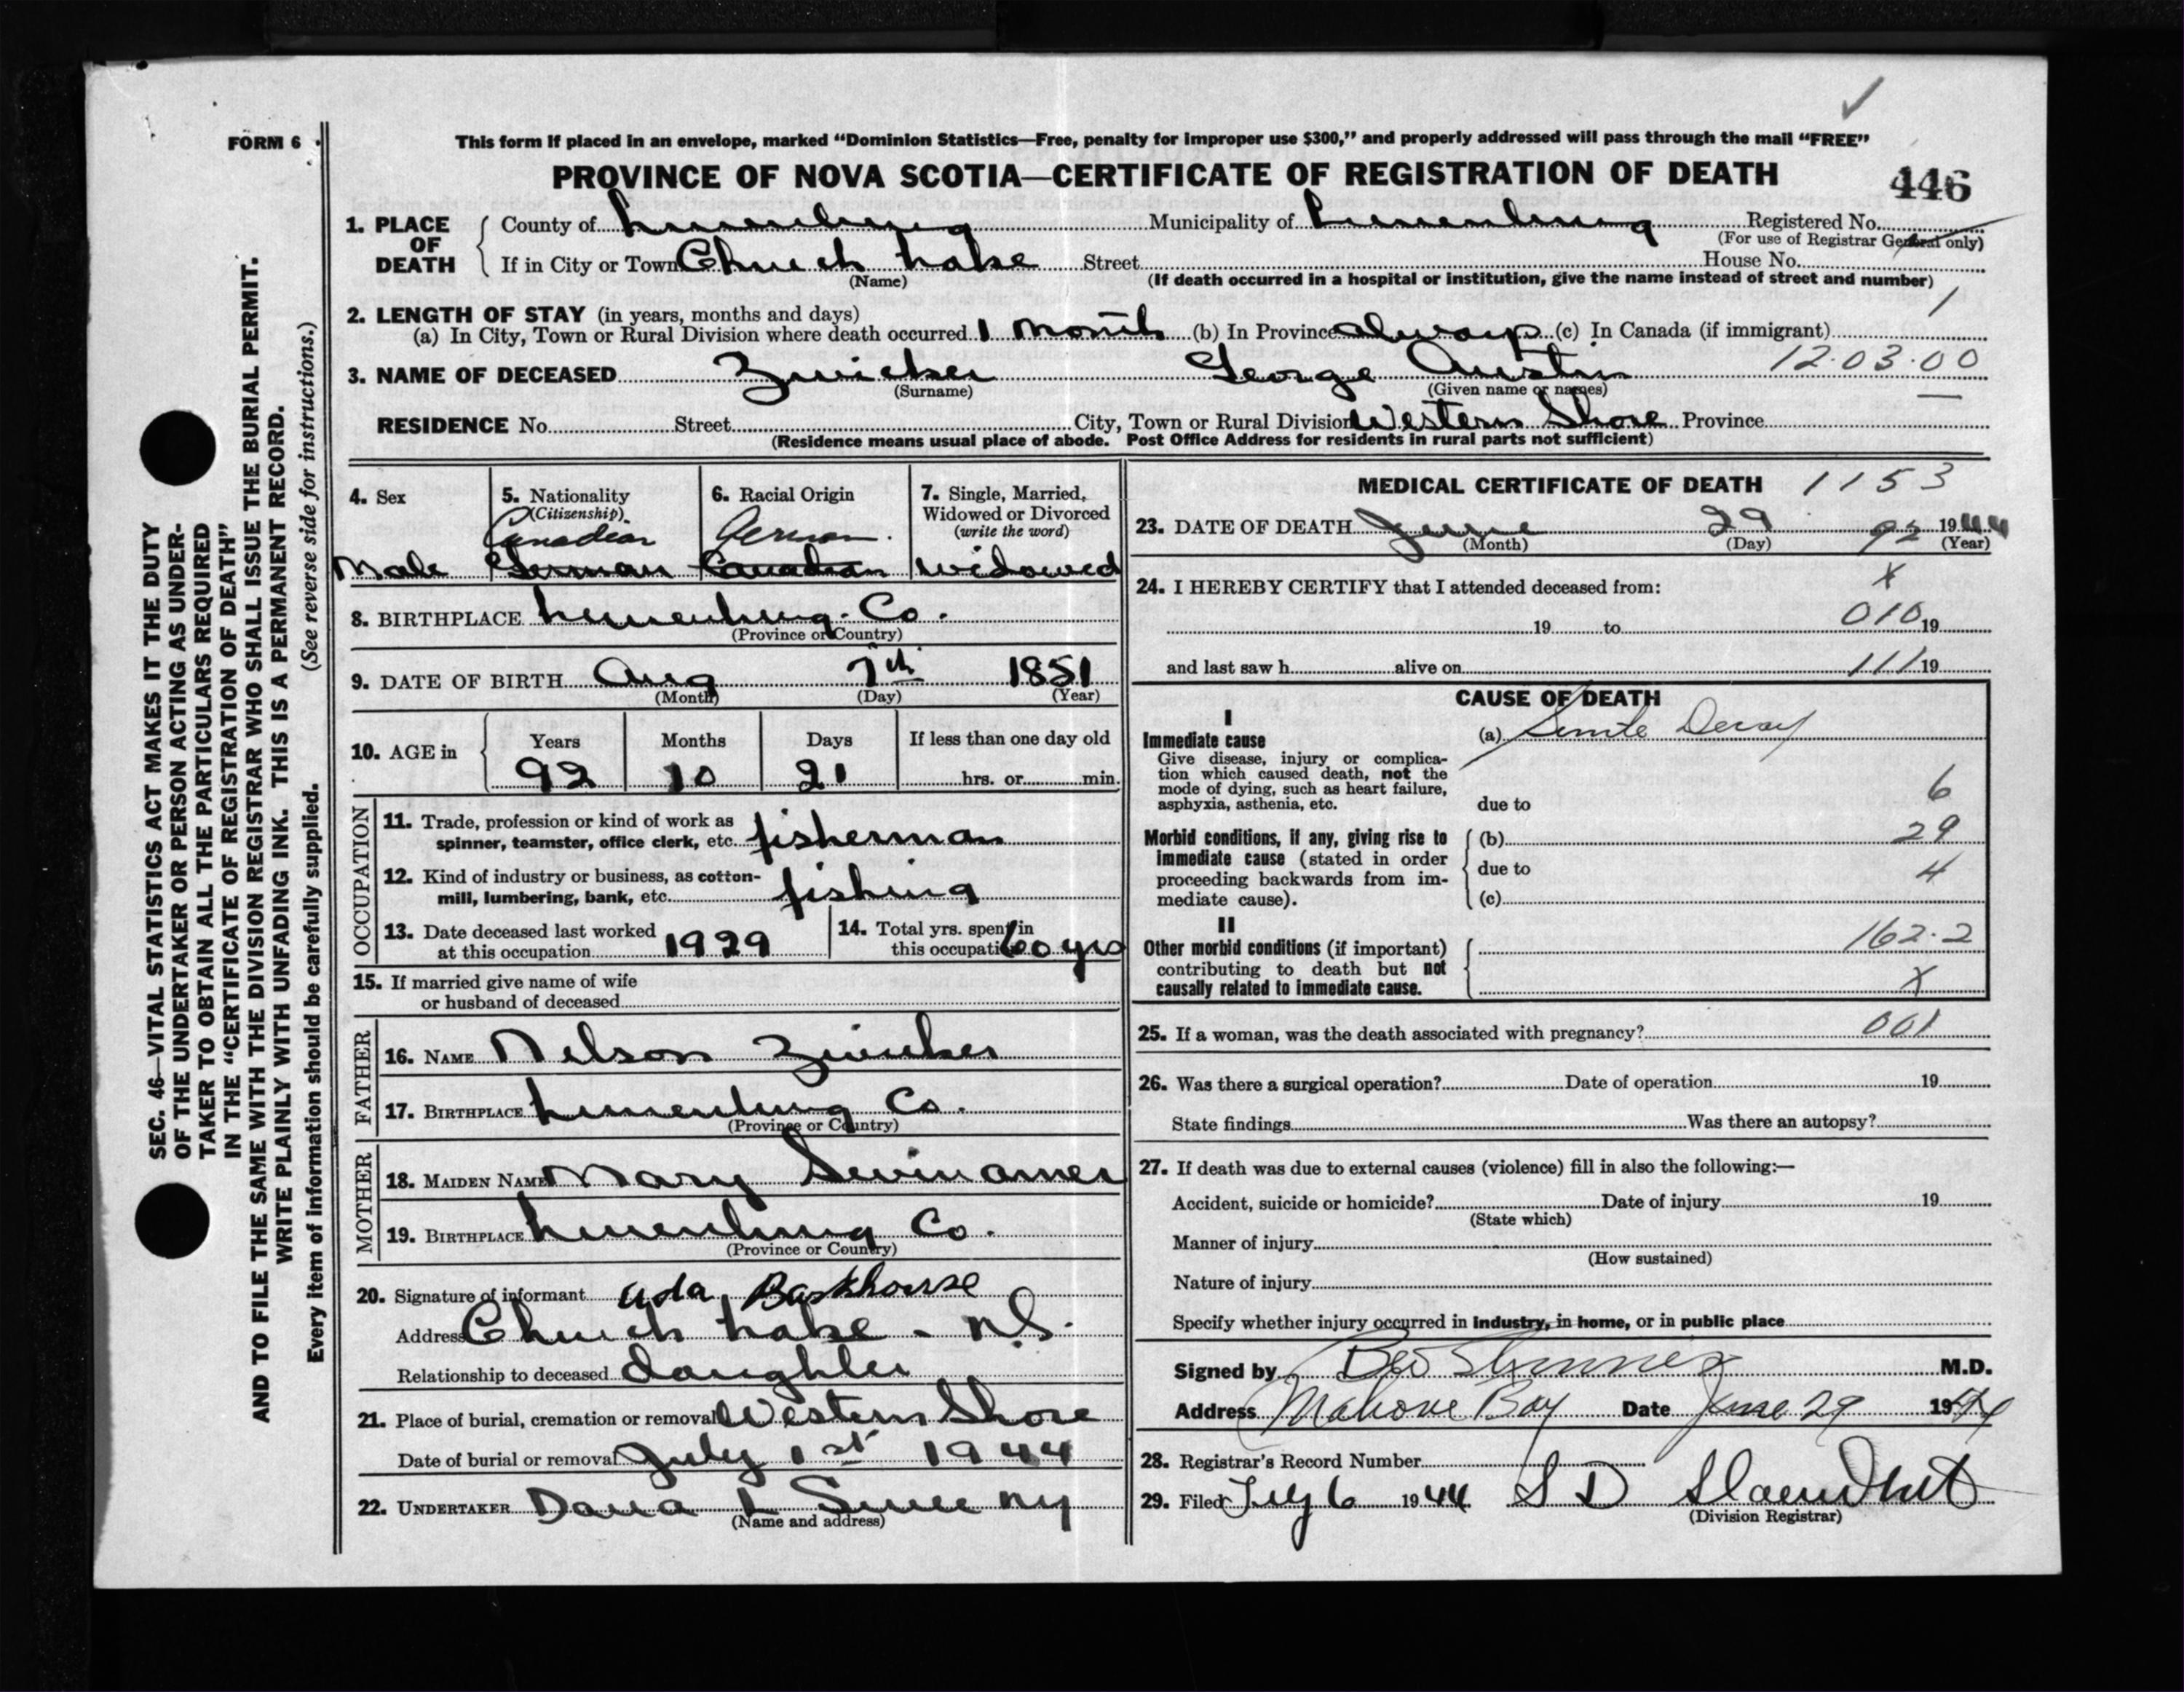 FORM 6
This form if placed in an envelope, marked "Dominion Statistics—Free, penalty for improper use $300," and properly addressed will pass through the mail "FREE"
PROVINCE OF NOVA SCOTIA—CERTIFICATE OF REGISTRATION OF DEATH 446
1. PLACE OF DEATH
County of Lunenburg Municipality of Lunenburg Registered No.
(For use of Registrar General only)
If in City or Town Church Lake Street House No.
(Name) (If death occurred in a hospital or institution, give the name instead of street and number)
2. LENGTH OF STAY (in years, months and days) 1
(a) In City, Town or Rural Division where death occurred 1 month (b) In Province always (c) In Canada (if immigrant)
3. NAME OF DECEASED Zwicker George Austin 12.03.00
(Surname) (Given name or names)
RESIDENCE No. Street City, Town or Rural Division Western Shore Province
(Residence means usual place of abode. Post Office Address for residents in rural parts not sufficient)
4. Sex
Male
5. Nationality
(Citizenship)
Canadian
German
6. Racial Origin
German.
Canadian
7. Single, Married,
Widowed or Divorced
(write the word)
widowed
8. BIRTHPLACE Lunenburg Co.
(Province or Country)
9. DATE OF BIRTH Aug 7th 1851
(Month) (Day) (Year)
10. AGE in Years Months Days If less than one day old
92 10 21 hrs. or min.
OCCUPATION
11. Trade, profession or kind of work as
spinner, teamster, office clerk, etc. fisherman
12. Kind of industry or business, as cotton-
mill, lumbering, bank, etc. fishing
13. Date deceased last worked
at this occupation 1929
14. Total yrs. spent in
this occupation 60 yrs
15. If married give name of wife
or husband of deceased
FATHER
16. NAME Nelson Zwicker
17. BIRTHPLACE Lunenburg Co.
(Province or Country)
MOTHER
18. MAIDEN NAME Mary Swinamer
19. BIRTHPLACE Lunenburg Co.
(Province or Country)
20. Signature of informant Ada Barkhouse
Address Church Lake - N.S.
Relationship to deceased daughter
21. Place of burial, cremation or removal Western Shore
Date of burial or removal July 1st 1944
22. UNDERTAKER Dana L Sweeny
(Name and address)
MEDICAL CERTIFICATE OF DEATH 1153
23. DATE OF DEATH June 29 92 1944
(Month) (Day) (Year)
24. I HEREBY CERTIFY that I attended deceased from: X
19 to 010 19
and last saw h alive on 111 19
CAUSE OF DEATH
I
Immediate cause
Give disease, injury or complica-
tion which caused death, not the
mode of dying, such as heart failure,
asphyxia, asthenia, etc.
(a) Senile Decay
due to 6
Morbid conditions, if any, giving rise to
immediate cause (stated in order
proceeding backwards from im-
mediate cause).
(b) 29
due to 4
(c)
II
Other morbid conditions (if important)
contributing to death but not
causally related to immediate cause.
162.2
X
25. If a woman, was the death associated with pregnancy? 001
26. Was there a surgical operation? Date of operation 19
State findings Was there an autopsy?
27. If death was due to external causes (violence) fill in also the following:—
Accident, suicide or homicide? Date of injury 19
(State which)
Manner of injury
(How sustained)
Nature of injury
Specify whether injury occurred in industry, in home, or in public place
Signed by M.D.
Address Mahone Bay Date June 29 1944
28. Registrar's Record Number
29. Filed July 6 1944 S D
(Division Registrar)
SEC. 46—VITAL STATISTICS ACT MAKES IT THE DUTY
OF THE UNDERTAKER OR PERSON ACTING AS UNDER-
TAKER TO OBTAIN ALL THE PARTICULARS REQUIRED
IN THE "CERTIFICATE OF REGISTRATION OF DEATH"
AND TO FILE THE SAME WITH THE DIVISION REGISTRAR WHO SHALL ISSUE THE BURIAL PERMIT.
WRITE PLAINLY WITH UNFADING INK. THIS IS A PERMANENT RECORD.
Every item of information should be carefully supplied. (See reverse side for instructions.)